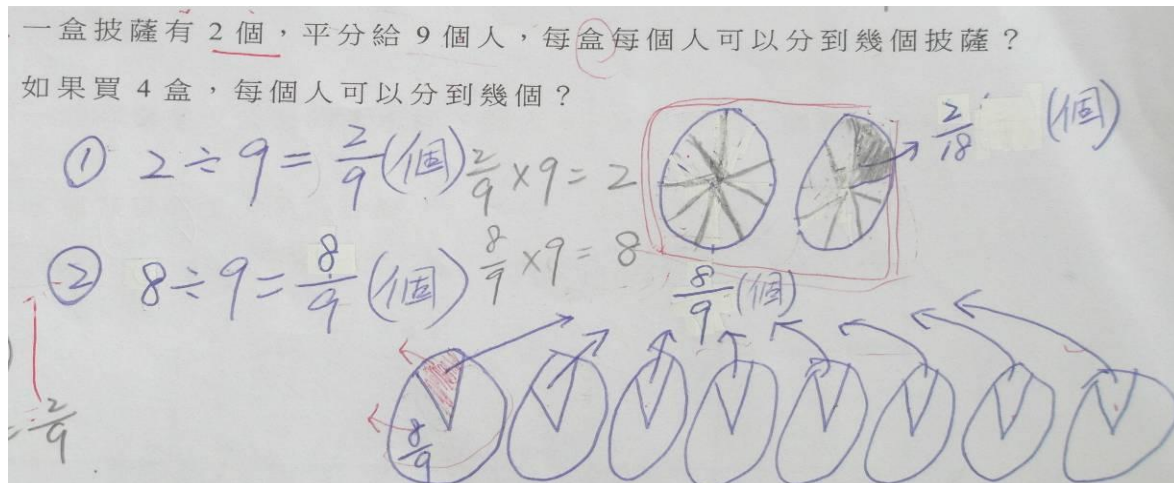 一盒披薩有 2 個，平分給 9 個人，每盒每個人可以分到幾個披薩？
如果買 4 盒，每個人可以分到幾個？
① 2÷9=2/9(個) 2/9×9=2
2/18 (個)
② 8÷9=8/9(個) 8/9×9=8
8/9(個)
8/9
=2/9